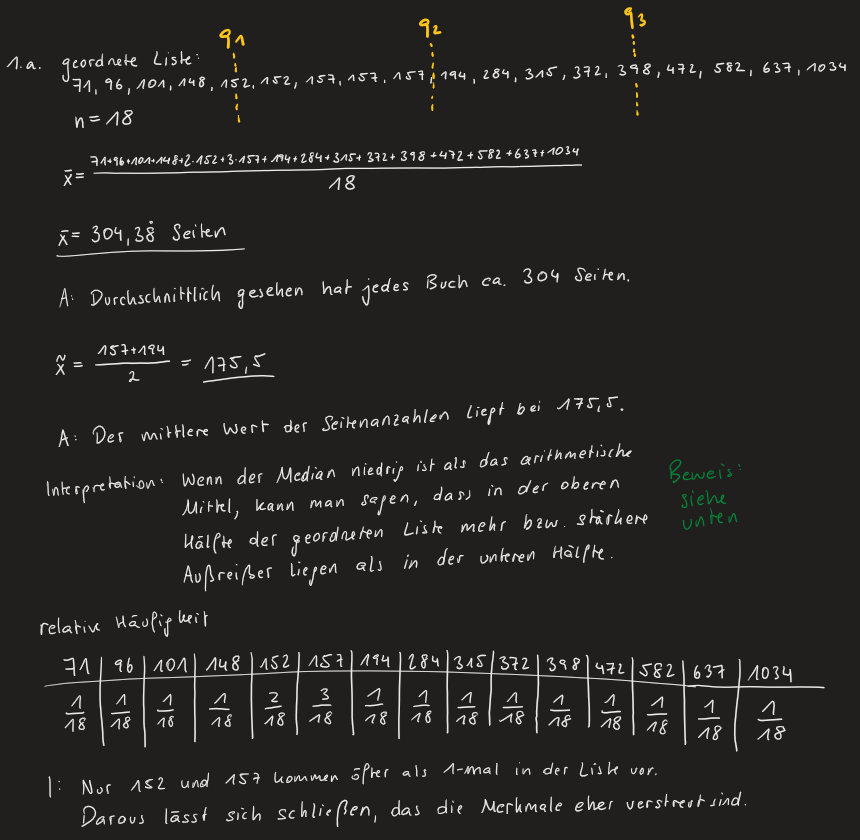 q1 q2 q3
1.a. geordnete Liste:
71, 96, 101, 148, 152, 152, 157, 157, 157, 194, 284, 315, 372, 398, 472, 582, 637, 1034
n = 18
x̄ = (71+96+101+148+2·152+3·157+194+284+315+372+398+472+582+637+1034) / 18
x̄ = 304,38̇ Seiten
A: Durchschnittlich gesehen hat jedes Buch ca. 304 Seiten.
x̃ = (157+194) / 2 = 175,5
A: Der mittlere Wert der Seitenanzahlen liegt bei 175,5.
Interpretation: Wenn der Median niedrig ist als das arithmetische
Mittel, kann man sagen, dass in der oberen
Hälfte der geordneten Liste mehr bzw. stärkere
Außreißer liegen als in der unteren Hälfte.
Beweis:
siehe
unten
relative Häufigkeit
71 | 96 | 101 | 148 | 152 | 157 | 194 | 284 | 315 | 372 | 398 | 472 | 582 | 637 | 1034
1/18 | 1/18 | 1/18 | 1/18 | 2/18 | 3/18 | 1/18 | 1/18 | 1/18 | 1/18 | 1/18 | 1/18 | 1/18 | 1/18 | 1/18
I: Nur 152 und 157 kommen öfter als 1-mal in der Liste vor.
Daraus lässt sich schließen, das die Merkmale eher verstreut sind.